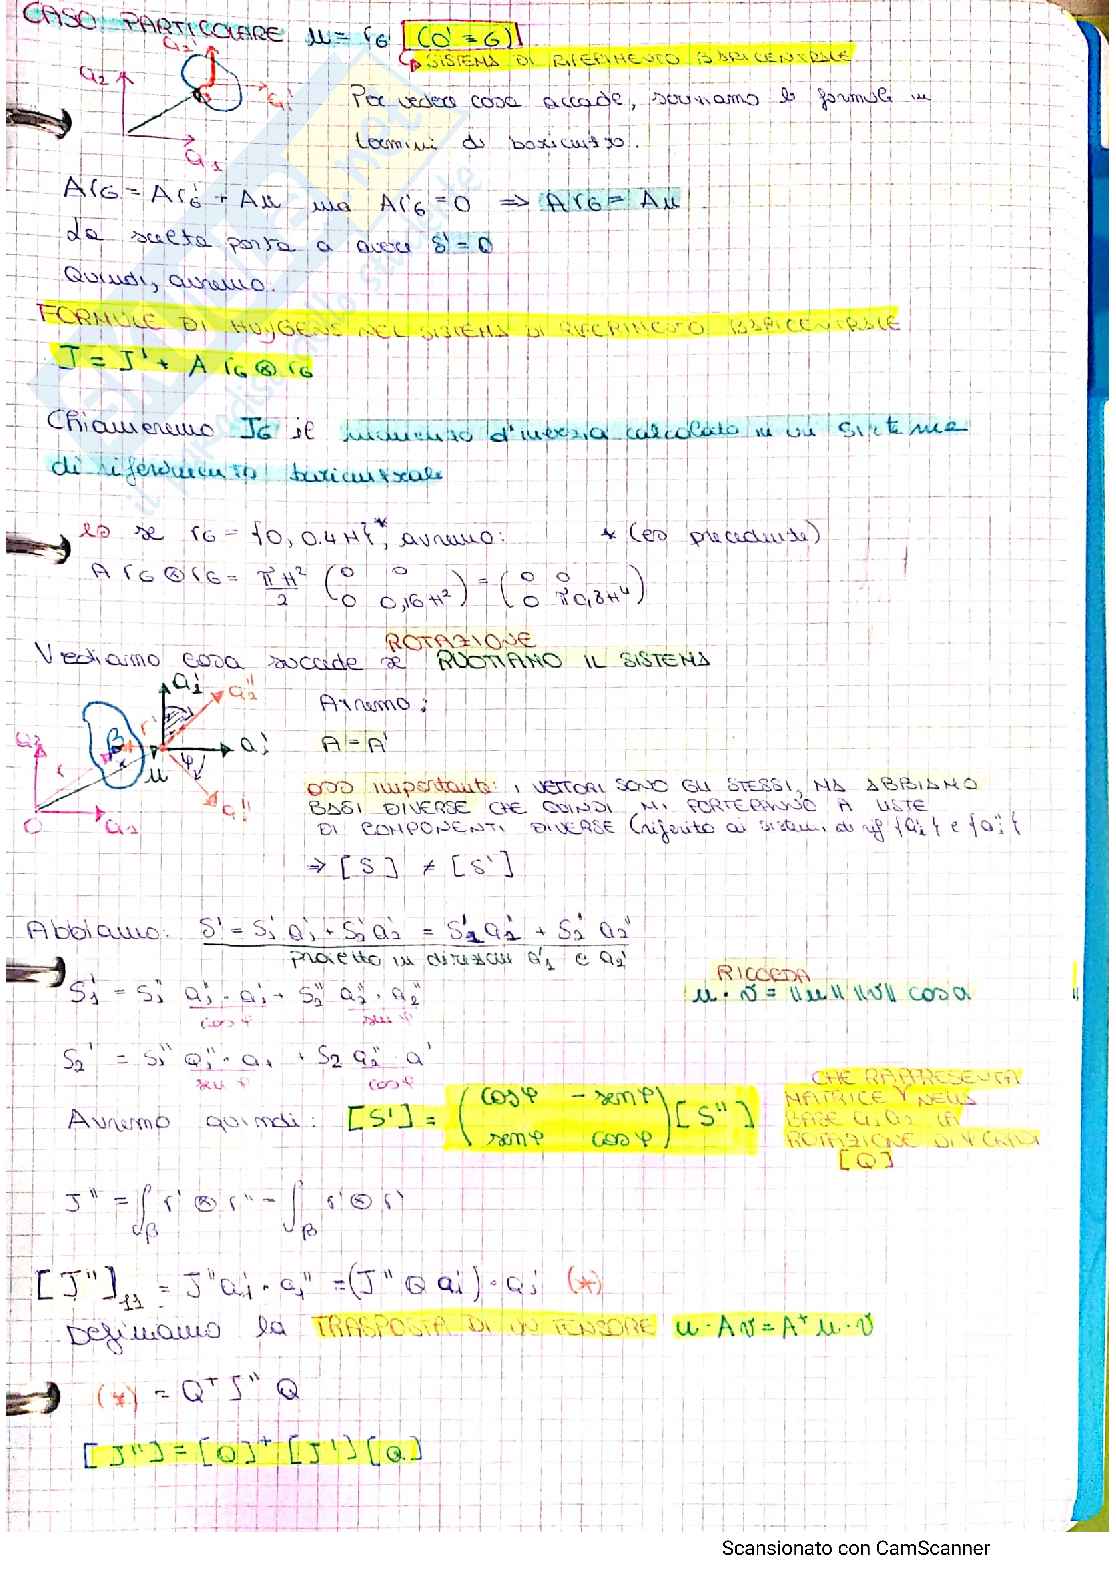 CASO PARTICOLARE u = rG (O' = G)
↳ SISTEMA DI RIFERIMENTO BARICENTRALE
a2 a2' a1' a1
Per vedere cosa accade, scriviamo le formule in
termini di baricentro.
ArG = Ar'G + Au ma Ar'G = 0 ⇒ ArG = Au
La scelta porta a avere S' = 0
Quindi, avremo.
FORMULE DI HUYGENS NEL SISTEMA DI RIFERIMENTO BARICENTRALE
J = J' + A rG ⊗ rG
Chiameremo JG il momento d'inerzia calcolato in un sistema
di riferimento baricentrale
es se rG = {0, 0.4H}*, avremo: * (es precedente)
A rG ⊗ rG = πH²/2 (0 0 / 0 0,16H²) = (0 0 / 0 π0,8H⁴)
ROTAZIONE
Vediamo cosa succede se RUOTIAMO IL SISTEMA
Avremo:
A = A'
OSS importante: I VETTORI SONO GLI STESSI, MA ABBIAMO
BASI DIVERSE CHE QUINDI MI PORTERANNO A LISTE
DI COMPONENTI DIVERSE (riferito ai sistemi di rif {ai'} e {ai''}
⇒ [S] ≠ [S']
Abbiamo: S' = S1' a1' + S2' a2' = S1'' a1'' + S2'' a2''
proietto in direzioni a1' e a2'
S1' = S1'' a1'' · a1' + S2'' a2'' · a2''
cosφ senφ
RICORDA
u · v = ||u|| ||v|| cosα
S2' = S1'' a1'' · a1 + S2 a2'' · a'
senφ cosφ
Avremo quindi: [S'] = (cosφ −senφ / senφ cosφ) [S'']
CHE RAPPRESENTA
MATRICE NELLA
BASE a1 a2 LA
ROTAZIONE DI φ
[Q]
J'' = ∫β r' ⊗ r'' = ∫β r' ⊗ r'
[J'']11 = J'' a1' · a1'' = (J'' Q a1') · a1' (*)
Definiamo la TRASPOSTA DI UN TENSORE u · Av = Aᵀu · v
(*) = Qᵀ J'' Q
[J''] = [Q]ᵀ [J'] [Q]
Scansionato con CamScanner